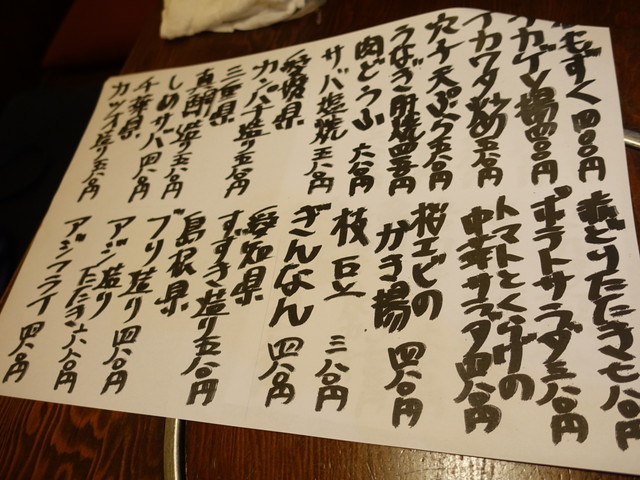 もずく 四〇〇円
アカゲソ揚 四八〇円
アカワタ炒め 五八〇円
穴子天ぷら 五八〇円
うなぎ肝焼 四五〇円
肉どうふ 六八〇円
サバ塩焼 五八〇円
愛媛県
カンパチ造り 五八〇円
三重県
真鯛造り 五八〇円
しめサバ 四八〇円
千葉県
カツオ造り 五八〇円
どりたたき 七八〇円
ポテトサラダ 三八〇円
トマトとくらげの
中華サラダ 四八〇円
桜エビの
かき揚 四八〇円
枝豆 三八〇円
ぎんなん 四八〇円
愛知県
すずき造り 五八〇円
島根県
ブリ造り 四八〇円
アジ造り
アジたたき 六八〇円
アジフライ 四八〇円